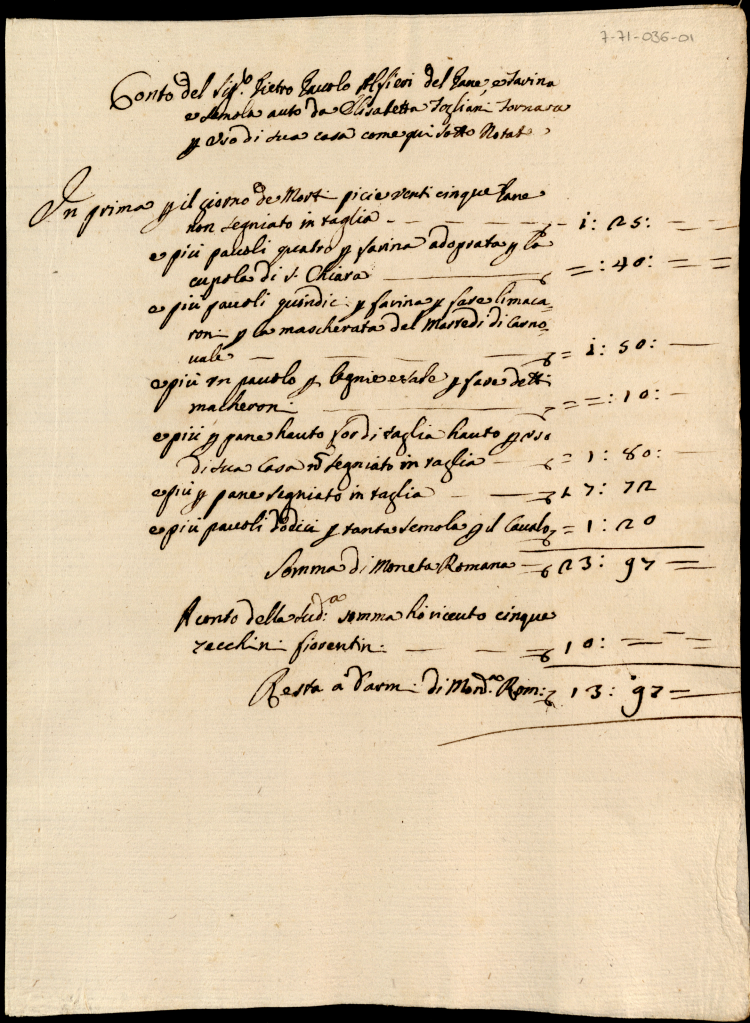 7-71-036-01
Conto del Sig.re Pietro Pauolo Alfieri del Pane, e Farina
e Semola auto da Elisabetta Fogliani Fornara
p uso di sua casa come qui sotto Notat
In prima p il giorno de Mort: picie venti cinque Pane
non segniato in taglia — 1: 25: —
e più pauoli quatro p farina adoprata p la
cupola di S. Chiara — = : 40: = =
e più pauoli quindic: p farina p fare li maca
ron: p la mascherata del Martedi di Carno
uale — = 1: 50: —
e più un pauolo p legnie e sale p fare dett:
macheroni — = = : 10: —
e più p pane hauto for di taglia hauto p uso
di sua Casa no segniato in taglia — = 1: 80: —
e più p pane segniato in taglia — 17: 72
e più pauoli dodici p tanta semola p il Cauallo = 1: 20
Somma di Moneta Romana — 23: 97 =
A conto della Sud:a somma hò riceuto cinque
zecchin: fiorentin: — 10: — = =
Resta a darm: di Mon.a Rom: 13: 97 =